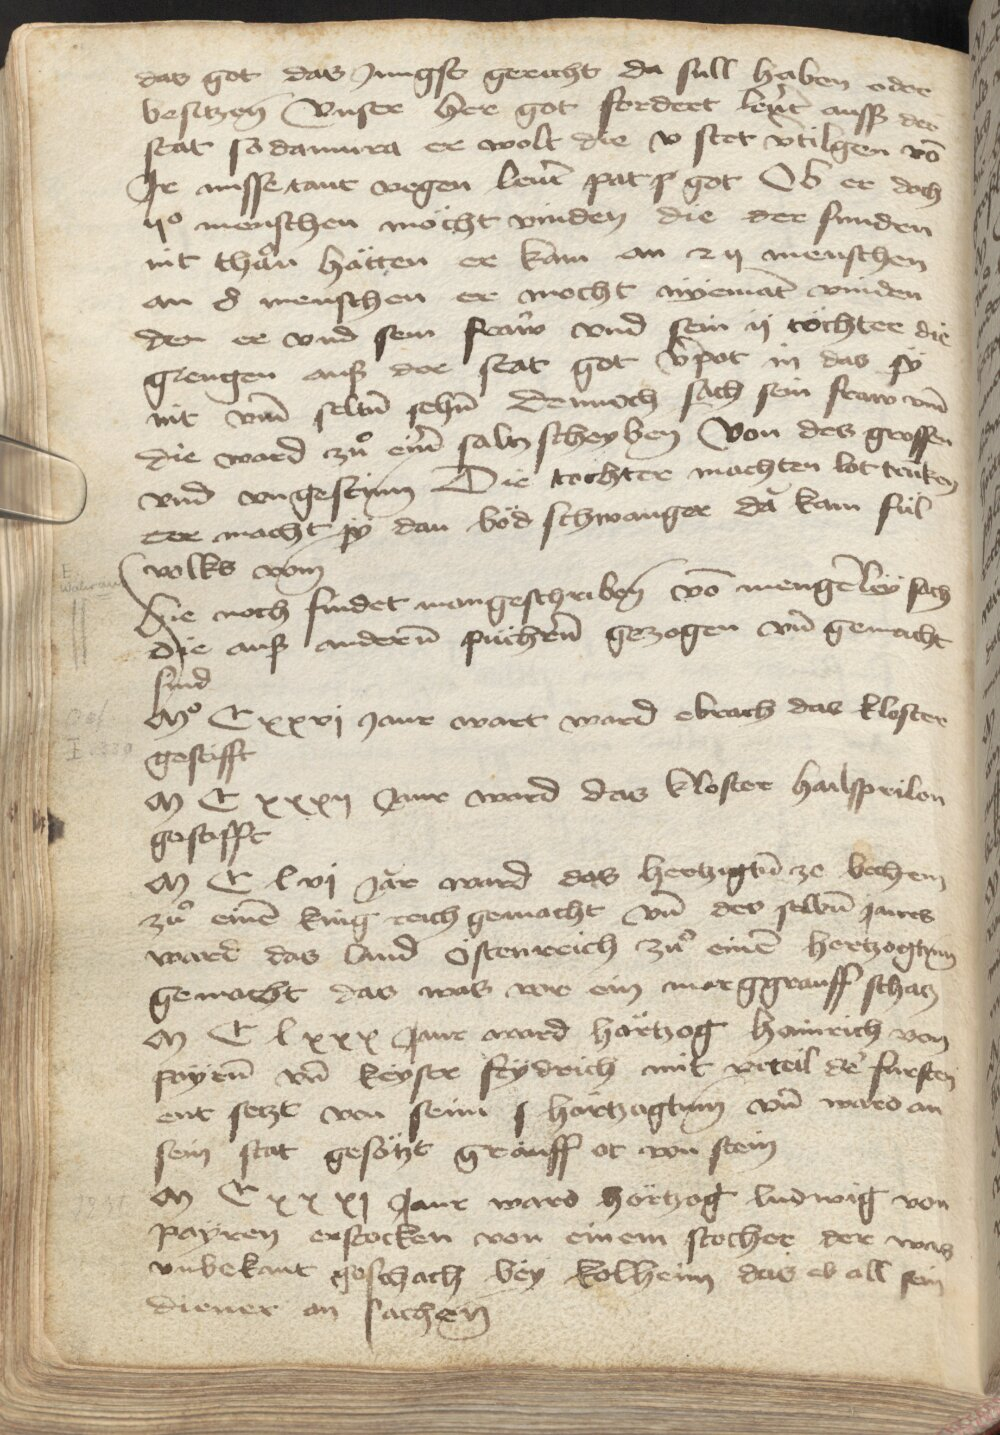 das got das Jungst gericht da sull haben oder
besitzen Vnser her got fordert leüt auss der
stat sodamura er wolt die v stet vtilgen võ
Jr missetaut wegen leüt pat p got Ob er doch
ijº menschen möcht vinden die der sunden
nit thän hätten er kam an 2 ij menschen
an menschen er mocht nyemat vinden
den er vnd sein fraw vnd sein ij töchter die
giengen auß der stat got v̄pot in das sy
nit vm̄ selbñ sehñ Dennoch sach sein fraw vm̄
die ward zů eim̄ saltz scheyben Von des grossen
vnd vngestüm Die tochter machten lot truken
er macht sy dan böd schwanger da kam fül
volks vom
Hie noch findet man geschriben võ mengerley sach
die auß anderñ püchrñ gezogen vñ gemacht
sind
Mº C xxvj Jaur wart ward ebrach das kloster
gestifft
M C xxxij Jaur ward das kloster hailsprilon
gestifft
M C lvj Jar ward das hertzigtū ze bechem
zů einē king reich gemacht vñ des selbñ Jaures
ward das land östenreich zů einē hertzogtum
gemacht das was vor ein marggrauff schatz
M C lxxx Jaur ward hörtzog hainrich von
payrñ vñ keyser frydrich mit vrteil de fursten
ent setzt von seim hörtzagtum vñ ward an
sein stat gesötzt grauff ot von stein
M C xxxj Jaur ward hörtzog ludwig von
payren erstocken von einem stocher der was
vnbekant geschach bey kolheim das eb all sein
diener an sachen